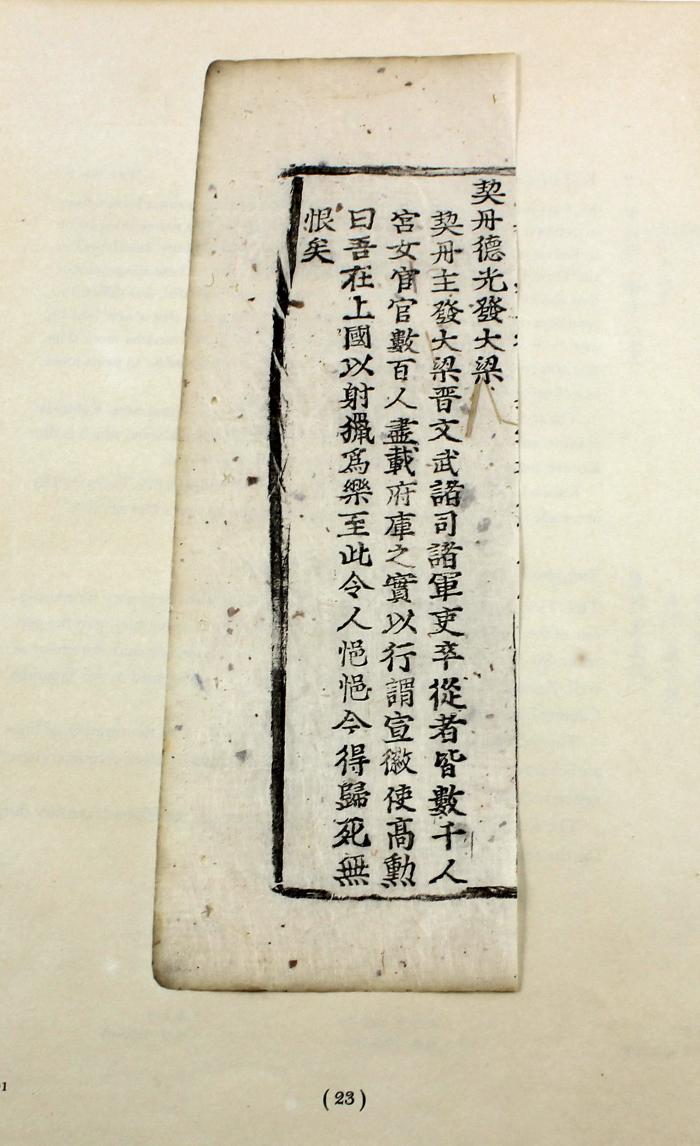 契丹德光發大梁
契丹主發大梁晋文武諸司諸軍吏卒從者皆數千人
宮女宦官數百人盡載府庫之實以行謂宣徽使高勳
曰吾在上國以射獵爲樂至此令人悒悒今得歸死無
恨矣
(23)